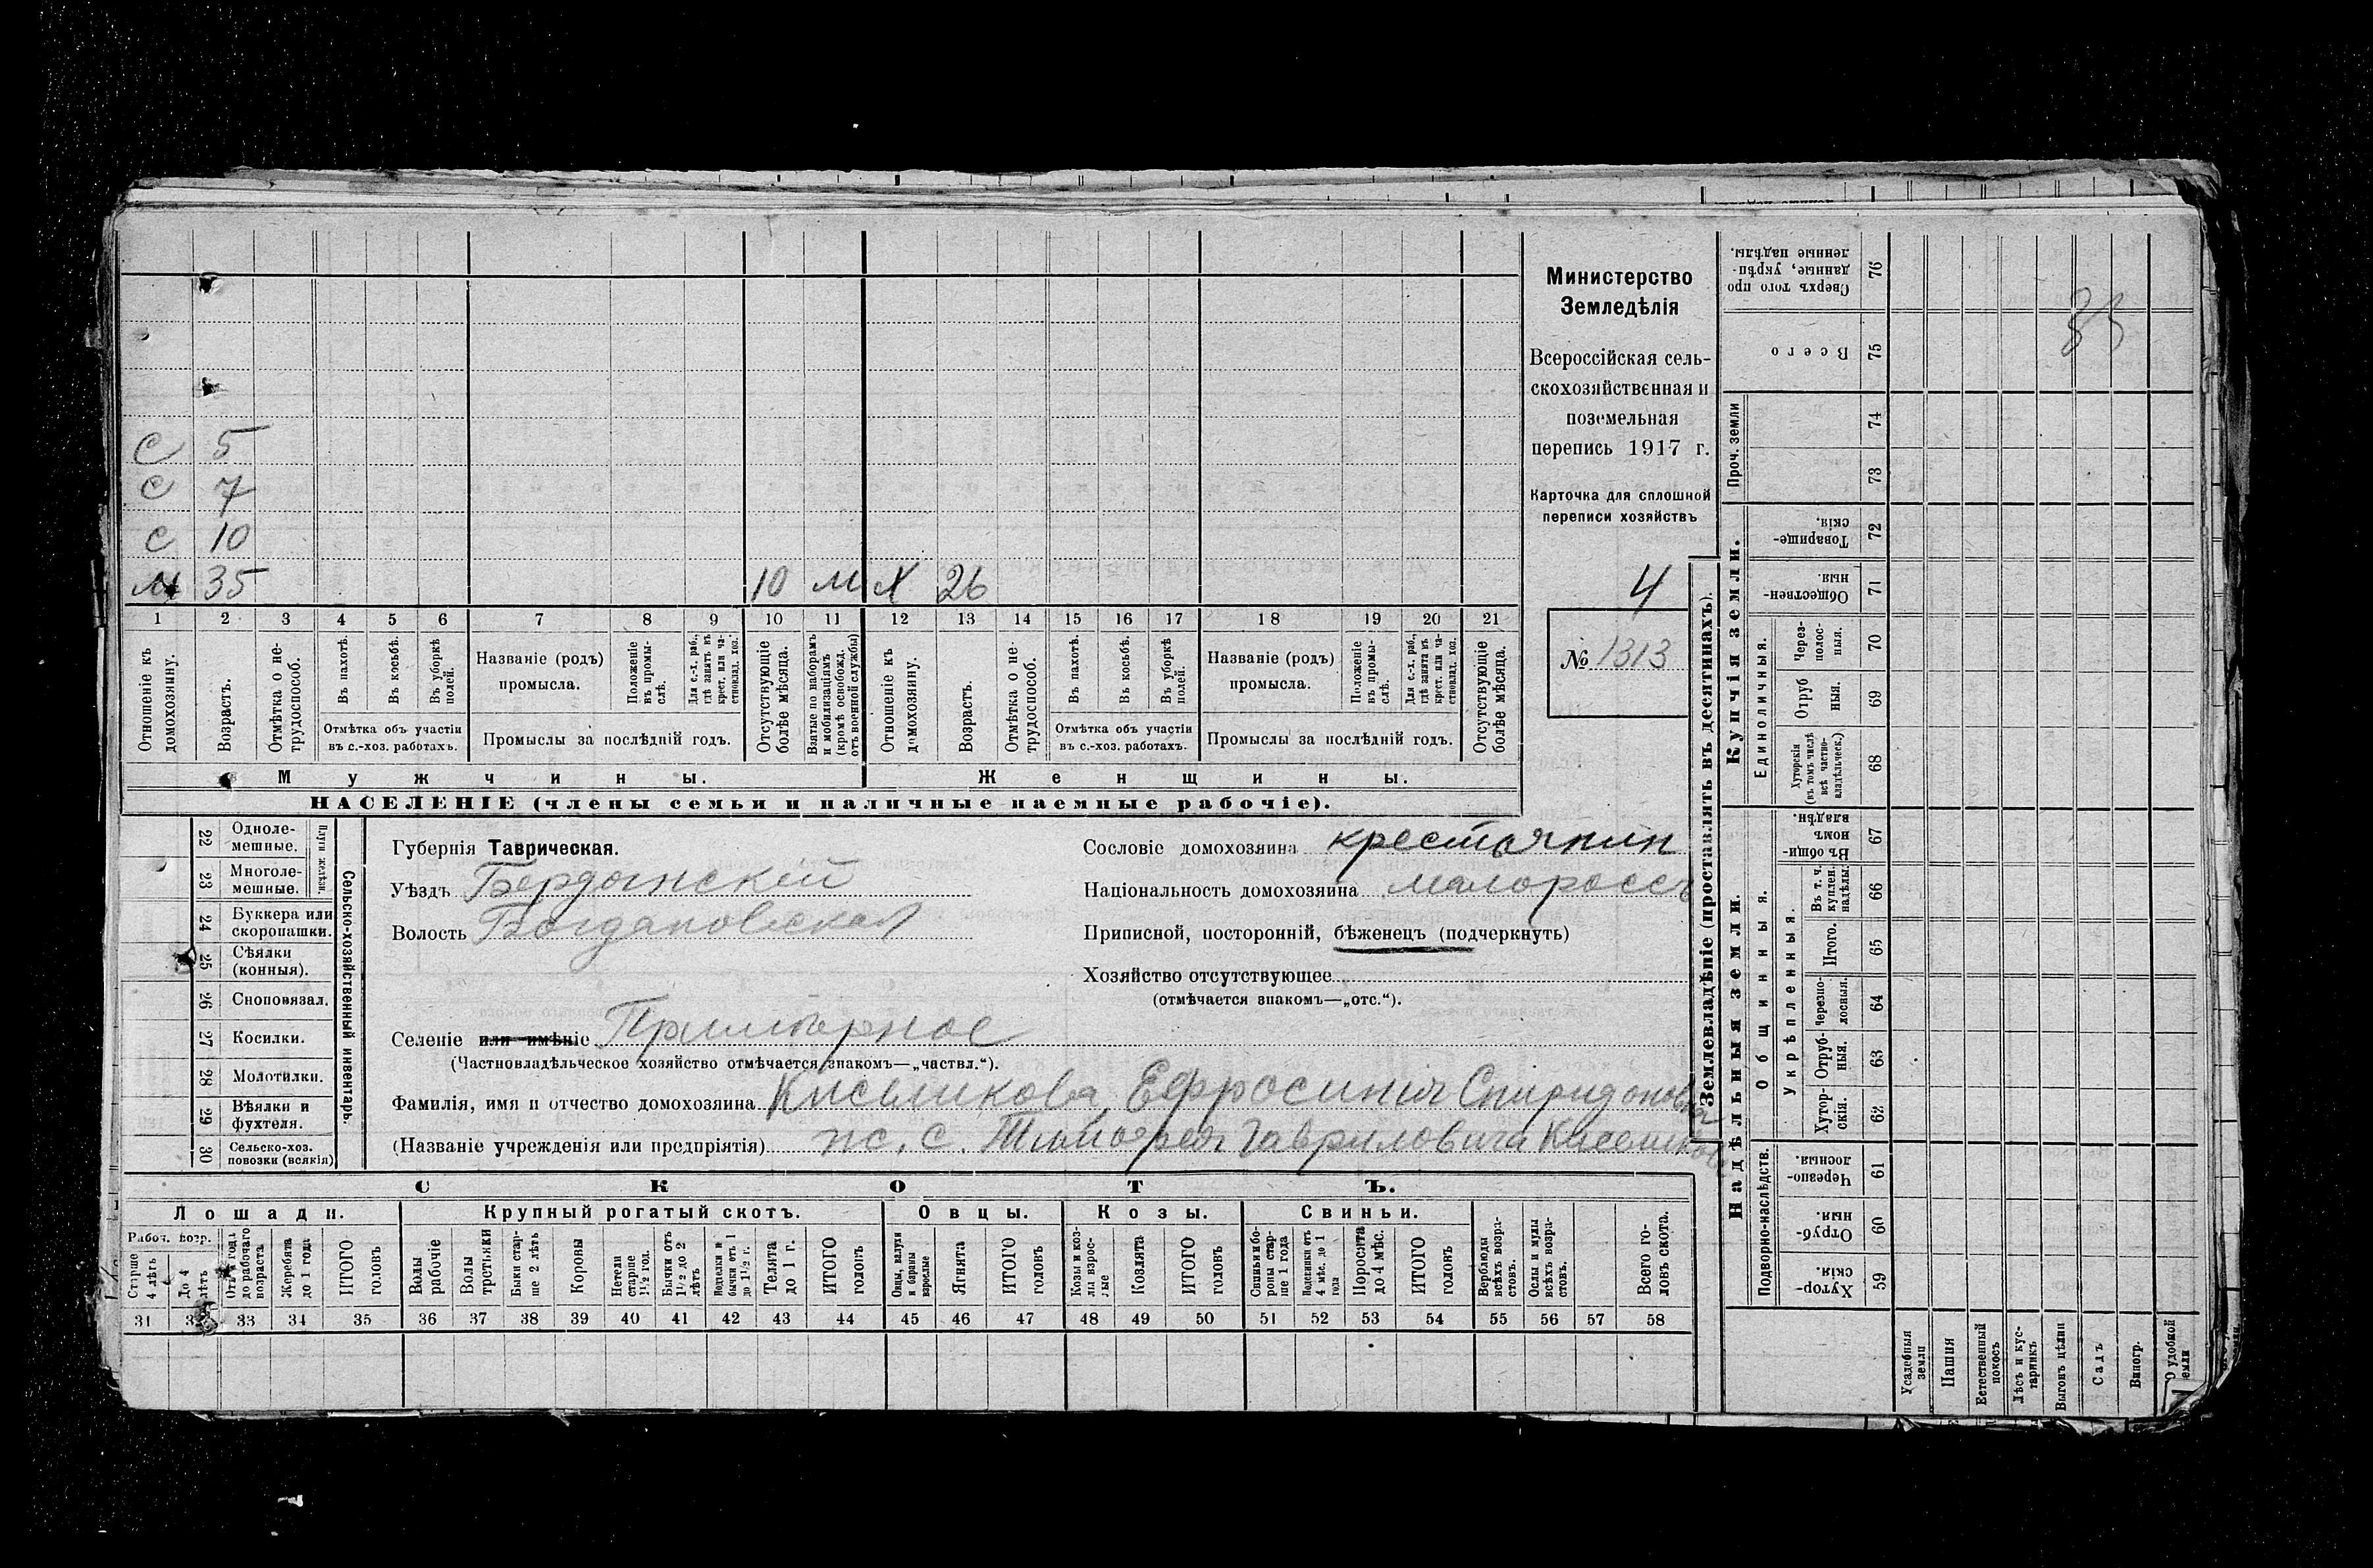 С 5
С 7
С 10
М 35 10 М Х 26
1 2 3 4 5 6 7 8 9 10 11 12 13 14 15 16 17 18 19 20 21
Отношеніе къ домохозяину.
Возрастъ.
Отмѣтка о нетрудоспособ.
Въ пахотѣ.
Въ косьбѣ.
Въ уборкѣ полей.
Отмѣтка объ участіи
въ с.-хоз. работахъ.
Названіе (родъ)
промысла.
Положеніе въ промыслѣ.
Для с.-х. раб., гдѣ занятъ въ крест. или частновлад. хоз.
Промыслы за послѣдній годъ.
Отсутствующіе болѣе мѣсяца.
Взятые по наборамъ и мобилизаціямъ (кромѣ освобожд. отъ военной службы)
Отношеніе къ домохозяину.
Возрастъ.
Отмѣтка о нетрудоспособ.
Въ пахотѣ.
Въ косьбѣ.
Въ уборкѣ полей.
Отмѣтка объ участіи
въ с.-хоз. работахъ.
Названіе (родъ)
промысла.
Положеніе въ промыслѣ.
Для с.-х. раб., гдѣ занята въ крест. или частновлад. хоз.
Промыслы за послѣдній годъ.
Отсутствующіе болѣе мѣсяца.
Мужчины. Женщины.
НАСЕЛЕНІЕ (члены семьи и наличные наемные рабочіе).
Министерство
Земледѣлія
Всероссійская сель-
скохозяйственная и
поземельная
перепись 1917 г.
Карточка для сплошной
переписи хозяйствъ
4
№ 1313
22 Одноле-
мешные.
23 Многоле-
мешные.
Плуги желѣзн.
24 Буккера или
скоропашки.
25 Сѣялки
(конныя).
26 Сноповязал.
27 Косилки.
28 Молотилки.
29 Вѣялки и
фухтеля.
30 Сельско-хоз.
повозки (всякія)
Сельско-хозяйственный инвентарь.
Губернія Таврическая.
Уѣздъ Бердянскій
Волость Богдановская
Селеніе или имѣніе
(Частновладѣльческое хозяйство отмѣчается знакомъ—„частвл.“).
Фамилія, имя и отчество домохозяина Ефросинія Спиридоновна
(Названіе учрежденія или предпріятія) ж. с. Тимофея Гавриловича
Сословіе домохозяина крестьянин
Національность домохозяина малороссъ
Приписной, посторонній, бѣженецъ (подчеркнуть)
Хозяйство отсутствующее
(отмѣчается знакомъ—„отс.“).
СКОТЪ.
Лошади. Крупный рогатый скотъ. Овцы. Козы. Свиньи.
Рабоч. возр.
Старше 4 лѣтъ
До 4 лѣтъ
до рабочаго возраста
Жеребята до 1 года
ИТОГО головъ
Волы рабочіе
Волы третьяки
Быки старше 2 лѣтъ
Коровы
Нетели старше 1½ год.
Бычки отъ 1½ до 2 лѣтъ
бычки отъ 1 до 1½ г.
Телята до 1 г.
ИТОГО головъ
Овцы, валухи и бараны взрослые
Ягнята
ИТОГО головъ
Козы и козлы взрослые
Козлята
ИТОГО головъ
Свиньи и боровы старше 1 года
Подсвинки отъ 4 мѣс. до 1 года
Поросята до 4 мѣс.
ИТОГО головъ
Верблюды всѣхъ возрастовъ.
Ослы и мулы всѣхъ возрастовъ.
Всего головъ скота.
31 33 34 35 36 37 38 39 40 41 42 43 44 45 46 47 48 49 50 51 52 53 54 55 56 57 58
Землевладѣніе (проставлять въ десятинахъ).
Надѣльныя земли. Купчія земли. Проч. земли
Подворно-наслѣдств.
Общинныя.
Укрѣпленныя.
Единоличныя.
Сверхъ того проданные, укрѣпленные надѣлы. 76
Всего 75
74
73
Товарищескія. 72
Общественныя 71
Черезполосныя. 70
Отрубныя. 69
Хуторскія (въ томъ числѣ всѣ частновладѣльческ.) 68
Въ общинномъ владѣн. 67
Въ т. ч. куплен. надѣлы. 66
Итого. 65
Черезполосныя. 64
Отрубныя. 63
Хуторскія. 62
Черезполосныя. 61
Отрубныя. 60
Хуторскія. 59
Усадебныя земли
Пашня
Естественный покосъ
Лѣсъ и кустарникъ
Выгонъ цѣлин
Садъ
Виногр.
удобной земли